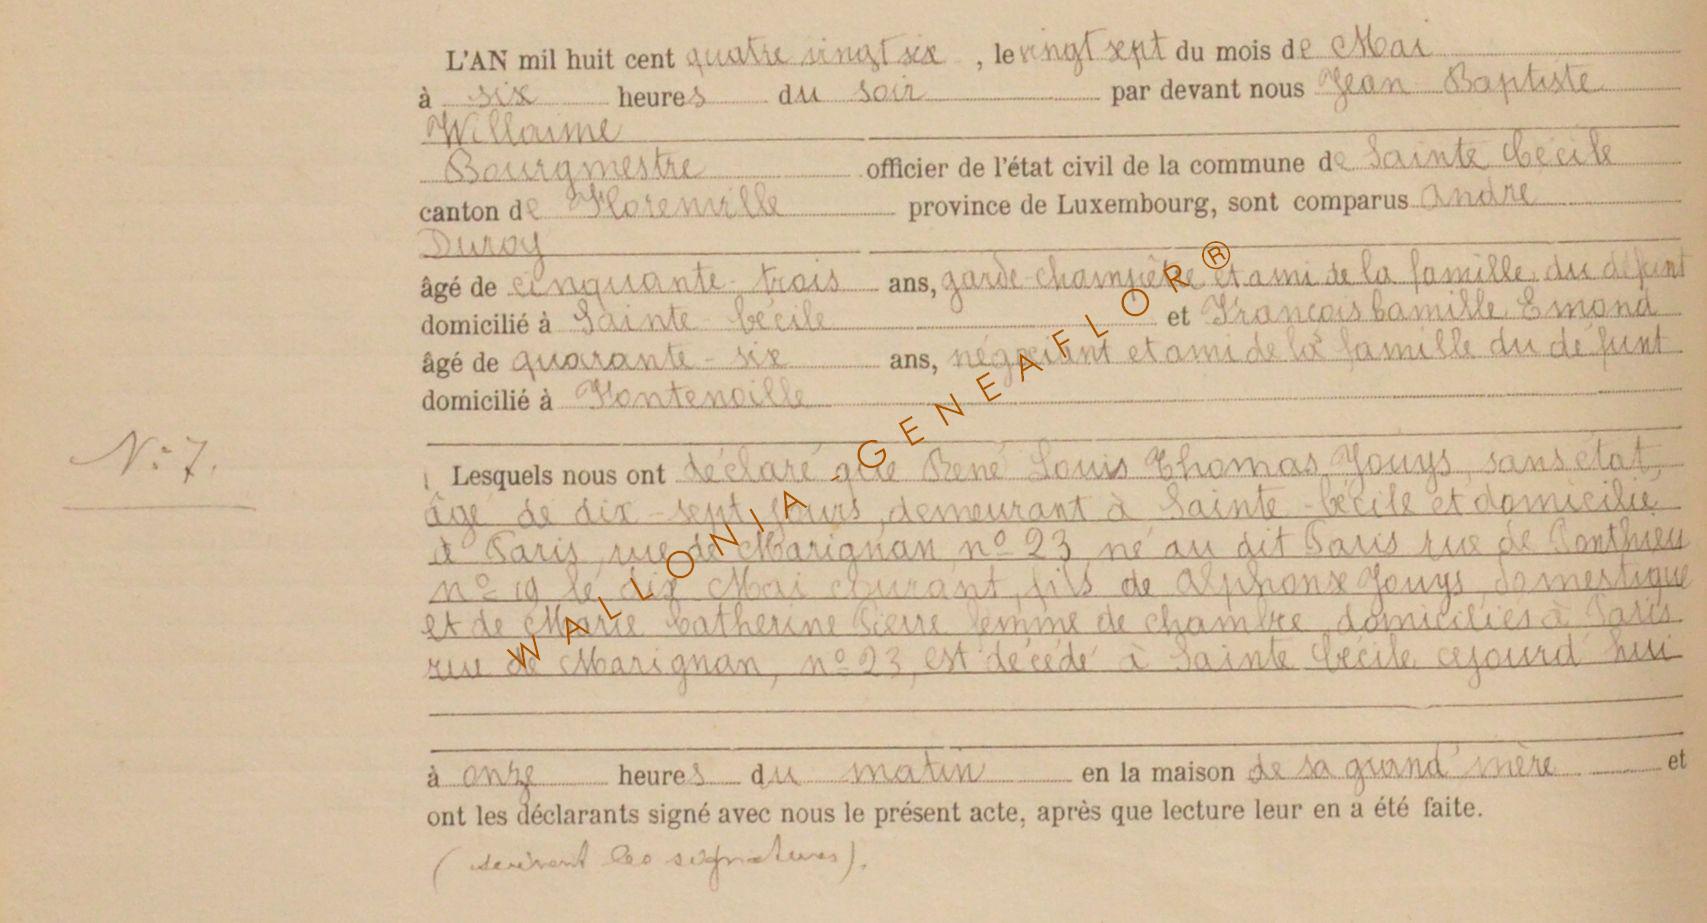 L'AN mil huit cent quatre vingt six, le vingt sept du mois de Mai
à six heures du soir par devant nous Jean Baptiste
Willaime
Bourgmestre officier de l'état civil de la commune de Sainte Cécile
canton de Florenville province de Luxembourg, sont comparus André
Duroy
âgé de cinquante-trois ans, garde-champêtre et ami de la famille du défunt
domicilié à Sainte-Cécile et François Camille Emond
âgé de quarante-six ans, négociant et ami de la famille du défunt
domicilié à Fontenoille
N° 7.
Lesquels nous ont déclaré que René Louis Thomas Jouys, sans état,
âgé de dix-sept jours, demeurant à Sainte-Cécile et domicilié
à Paris, rue de Marignan n° 23 né au dit Paris rue de Ponthieu
n° 19 le dix Mai courant, fils de Alphonse Jouys, domestique
et de Marie Catherine Pierre femme de chambre, domiciliés à Paris
rue de Marignan, n° 23, est décédé à Sainte Cécile cejourd'hui
à onze heures du matin en la maison de sa grand'mère et
ont les déclarants signé avec nous le présent acte, après que lecture leur en a été faite.
(suivent les signatures).
WALLONIA-GENEAFLOR®